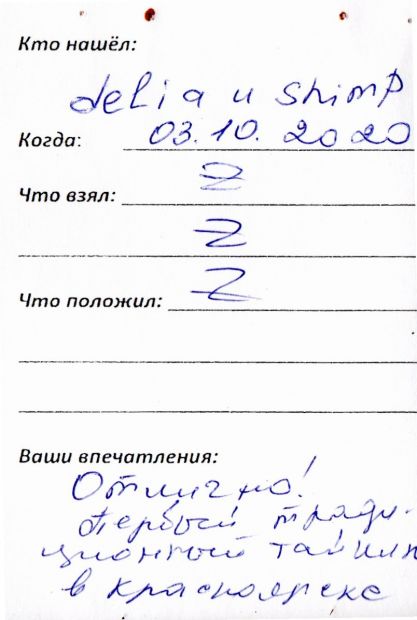 Кто нашёл:
delia и shimp
Когда: 03.10.2020
Что взял: Z
Z
Что положил: Z
Ваши впечатления:
Отлично!
Первый тради-
ционный тайник
в Красноярске